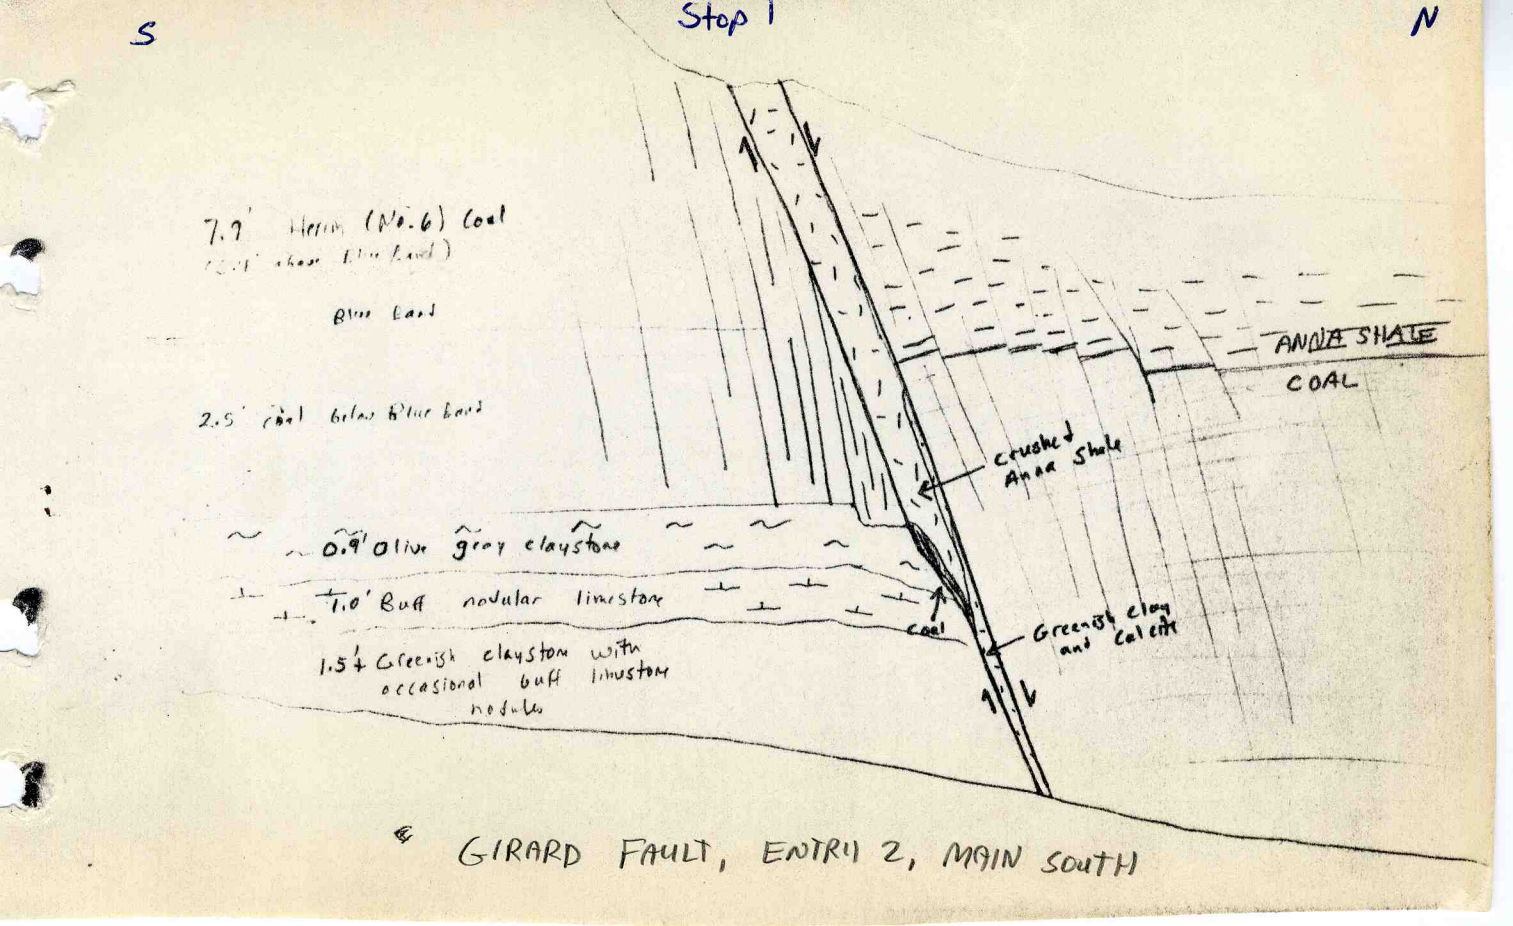 S
Stop 1
N
7.9' Herrin (No. 6) Coal
above Blue Band)
Blue Band
ANNA SHALE
COAL
2.5' coal below Blue Band
Crushed
Anna Shale
0.9' Olive gray claystone
1.0' Buff nodular limestone
coal
Greenish clay
and Calcite
1.5'± Greenish claystone with
occasional buff limestone
nodules
GIRARD FAULT, ENTRY 2, MAIN SOUTH